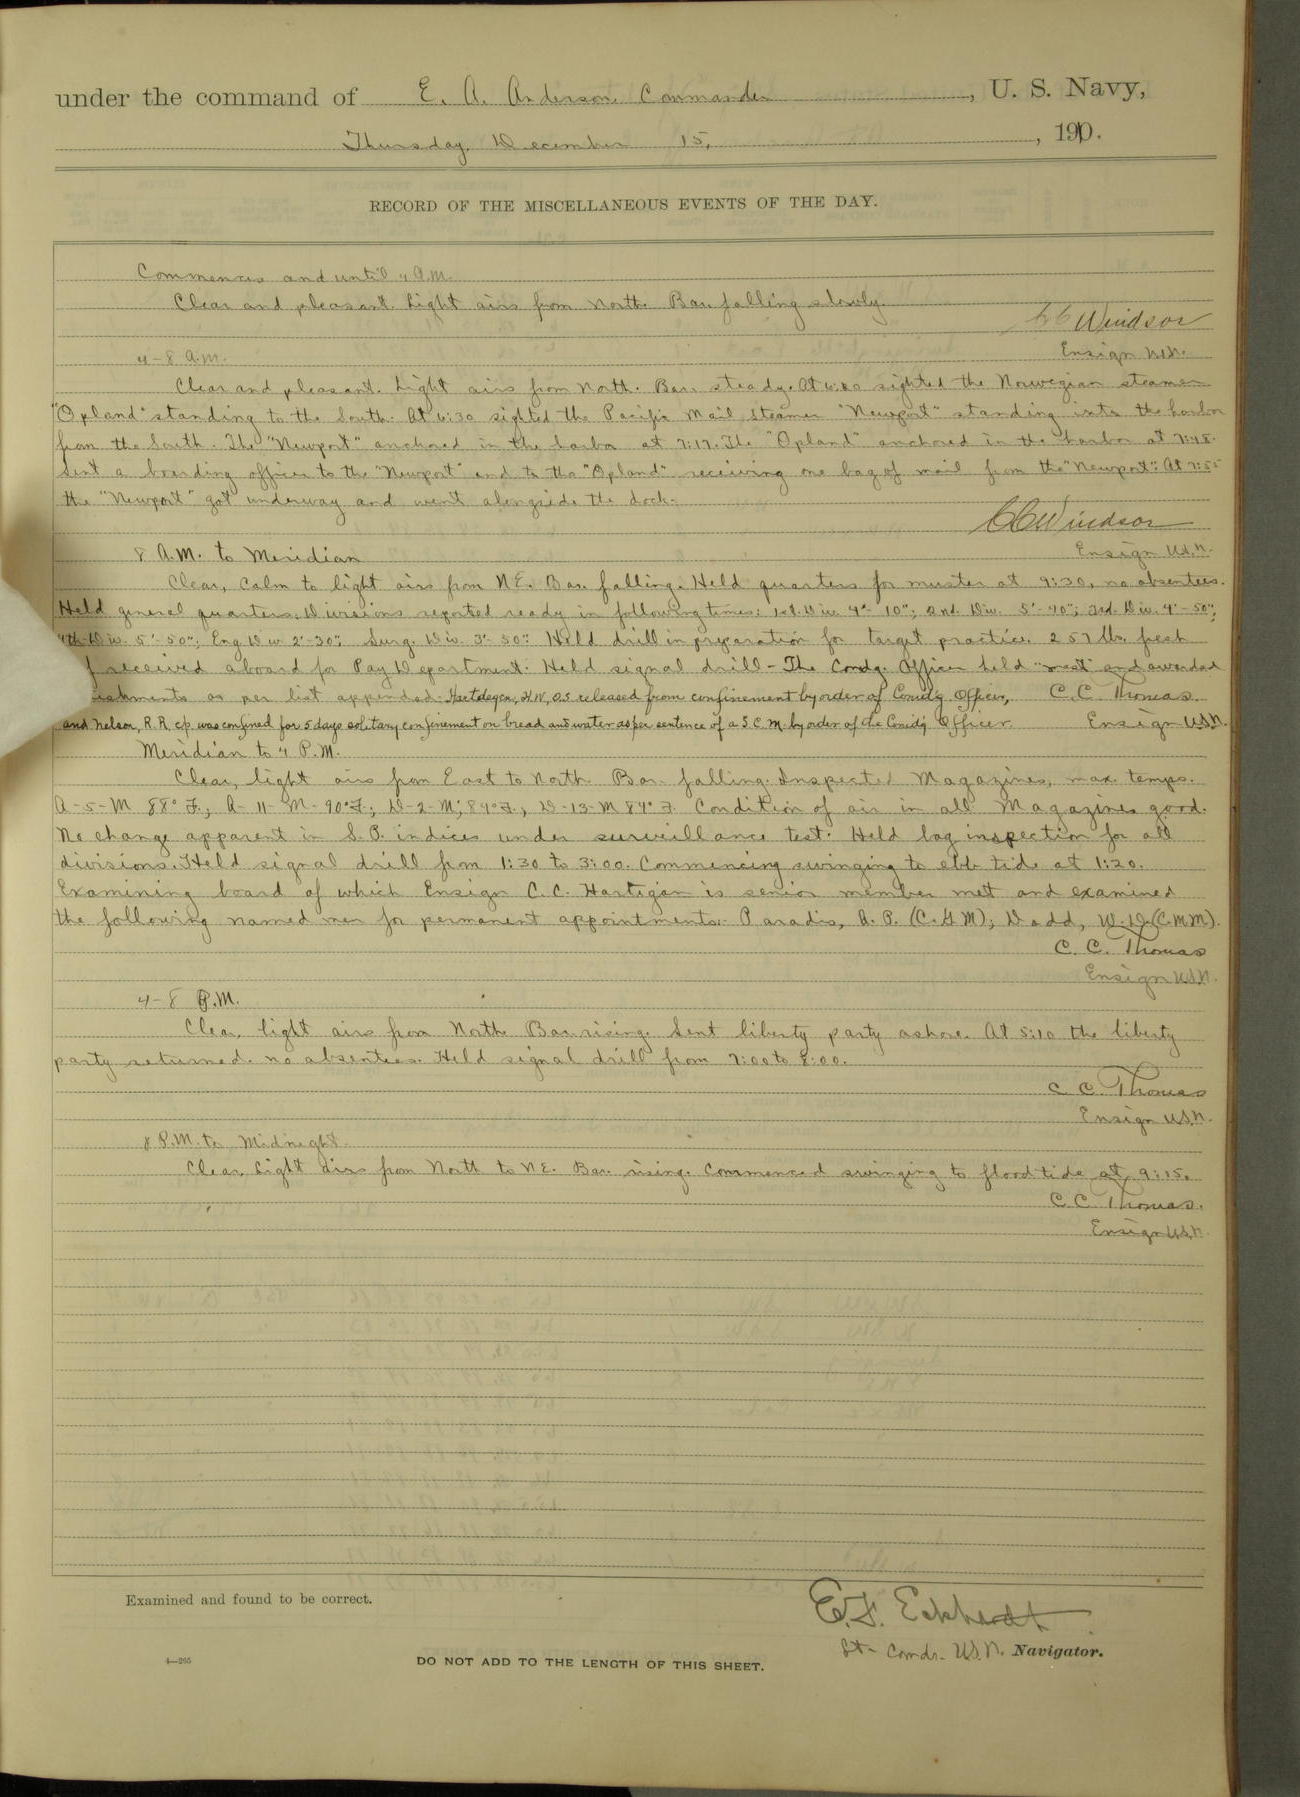 under the command of E. A. Anderson, Commander, U. S. Navy,
Thursday, December 15, 1910.
RECORD OF THE MISCELLANEOUS EVENTS OF THE DAY.
Commences and until 4 A.M.
Clear and pleasant. Light airs from North. Bar. falling slowly.
CC Windsor
4-8 A.M.
Ensign U.S.N.
Clear and pleasant. Light airs from North. Bar. steady. At sighted the Norwegian steamer
"Opland" standing to the South. At 6:30 sighted the Pacific Mail Steamer "Newport" standing into the harbor
from the South. The "Newport" anchored in the harbor at 7:17. The "Opland" anchored in the harbor at 7:48.
Sent a boarding officer to the "Newport" and to the "Opland" receiving one bag of mail from the "Newport". At 7:55
the "Newport" got underway and went alongside the dock.
CC Windsor
8 A.M. to Meridian
Ensign U.S.N.
Clear, Calm to light airs from N.E. Bar. falling. Held quarters for muster at 9:30, no absentees.
Held general quarters. Divisions reported ready in following times: 1st. Div. 4'-10"; 2nd. Div. 5'-40"; 3rd. Div. 4'-50";
4th Div. 5'-50"; Eng. Div. 2'-30"; Surg. Div. 3'-50". Held drill in preparation for target practice. 257 lbs. fresh
received aboard for Pay Department. Held signal drill - The Comdg. Officer held "mast" and awarded
ishments as per list appended. H.W., O.S. released from confinement by order of Comdg Officer,
C. C. Thomas
and Nelson, R.R. c.p. was confined for 5 days solitary confinement on bread and water as per sentence of a S.C.M. by order of the Comdg Officer.
Ensign U.S.N.
Meridian to 4 P.M.
Clear, light airs from East to North. Bar. falling. Inspected Magazines, max. temps.
A-5-M 88° F.; A-11-M-90° F.; D-2-M; 84° F.; D-13-M 84° F. Condition of air in all Magazines good.
No change apparent in S.P. indices under surveillance test. Held bag inspection for all
divisions. Held signal drill from 1:30 to 3:00. Commencing swinging to ebb tide at 1:20.
Examining board of which Ensign C. C. Hartigan is senior member met and examined
the following named men for permanent appointments: Paradis, A. P. (C.G.M); Dodd, W. D. (C.M.M).
C. C. Thomas
Ensign U.S.N.
4-8 P.M.
Clear, light airs from North. Bar. rising. Sent liberty party ashore. At 5:10 the liberty
party returned. no absentees. Held signal drill from 7:00 to 8:00.
C. C. Thomas
Ensign U.S.N.
8 P.M. to Midnight.
Clear, Light airs from North to N.E. Bar. rising. Commenced swinging to flood tide at 9:15.
C. C. Thomas.
Ensign U.S.N.
Examined and found to be correct.
E. F. Eckhardt
Lt- Comdr. U.S.N. Navigator.
4—265
DO NOT ADD TO THE LENGTH OF THIS SHEET.